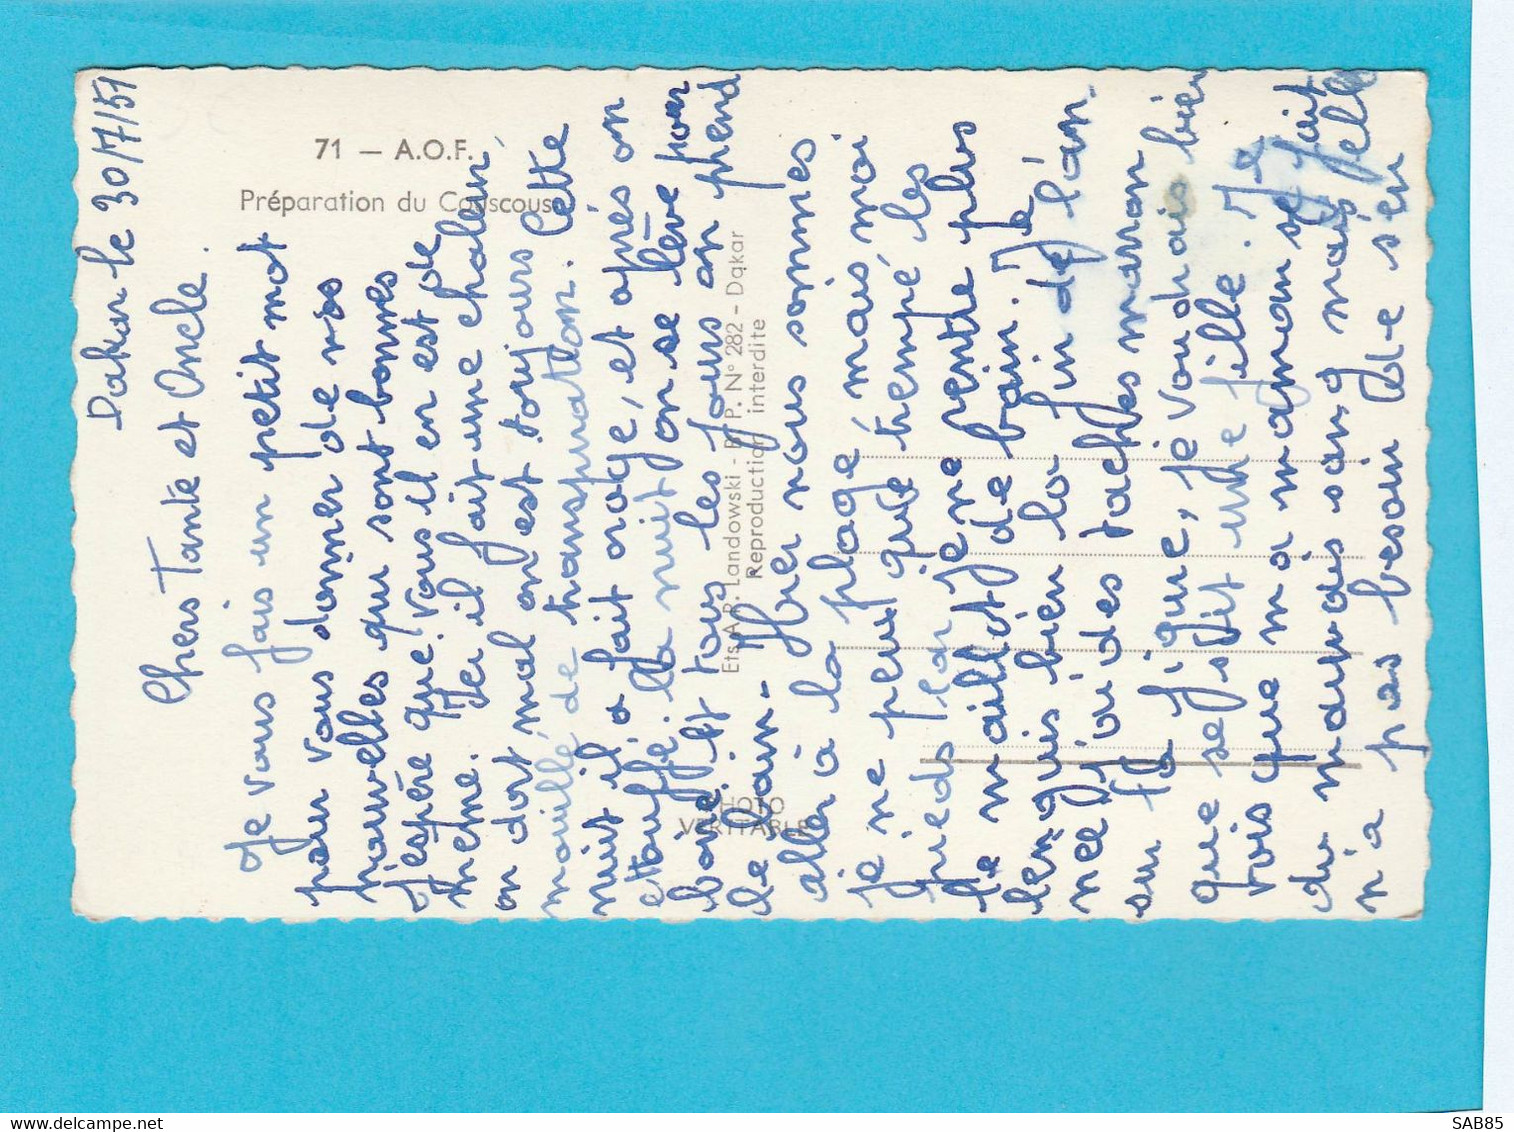 71 — A.O.F.
Préparation du Couscous
Ets A.R. Landowski - B. P. N° 282 - Dakar
Reproduction interdite
PHOTO
VERITABLE
Dakar le 30/7/51
Chers Tante et Oncle.
Je vous fais un petit mot
pour vous donner de vos
nouvelles qui sont bonnes
J'espère que vous il en est de
meme. Ici il fait une chaleur
on dort mal on est toujours
mouillé de transpiration. Cette
nuit il a fait orage, et après on
etouffe. La nuit on se lève pour
boire. Et tous les jours on prend
le bain - Hier nous sommes
aller à la plage mais moi
je ne peux que trempé les
pieds car je ne rentre plus
le maillot de bain. Je
languis bien la fin de l'an
née j'ai des taches marron
sur la figure, je voudrais bien
que se soit une fille. Je
vois que ma maman se fait
du mauvais sang mais elle
n'a pas besoin de s'en
SAB85